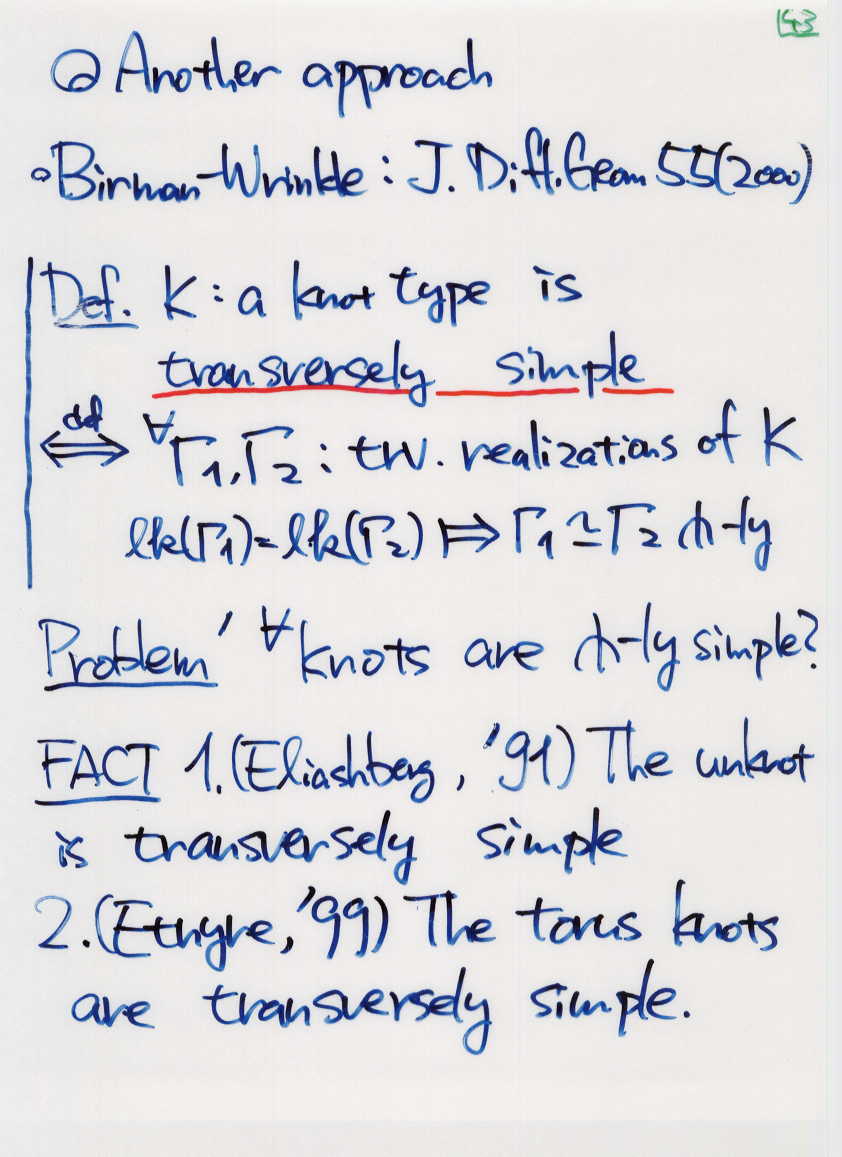 43
Another approach
Birman-Wrinkle: J. Diff. Geom 55 (2000)
Def. K : a knot type is
transversely simple
⇔ def ∀Γ1, Γ2 : trv. realizations of K
lk(Γ1) = lk(Γ2) ⟹ Γ1 ≃ Γ2 ⋔-ly
Problem' ∀knots are ⋔-ly simple?
FACT 1. (Eliashberg, '91) The unknot
is transversely simple
2. (Etnyre, '99) The torus knots
are transversely simple.